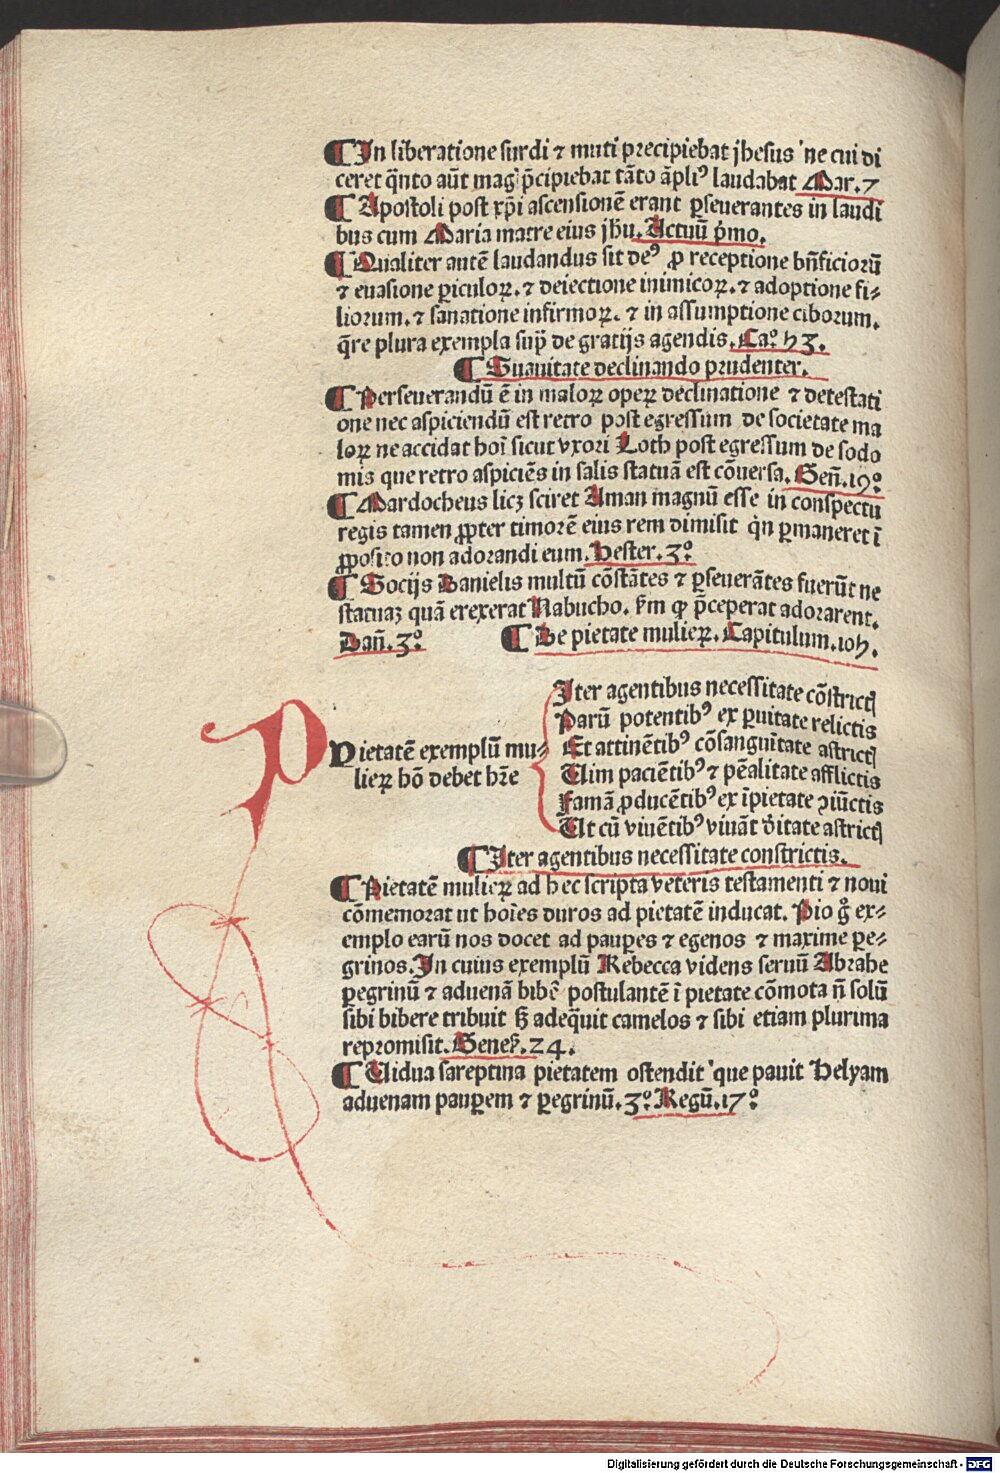 ¶ In liberatione surdi ⁊ muti precipiebat jhesus ne cui di
ceret q̄nto aūt mag̕ p̄cipiebat tāto āpliꝰ laudabat Mar.7
¶ Apostoli post xp̄i ascensionē erant ꝑseuerantes in laudi
bus cum Maria matre eius jhū. Actuū p̄mo.
¶ Qualiter autē laudandus sit deꝰ ꝓ receptione bn̄ficiorū
⁊ euasione ꝑiculoꝝ. ⁊ deiectione inimicoꝝ. ⁊ adoptione fi⸗
liorum. ⁊ sanatione infirmoꝝ. ⁊ in assumptione ciborum.
q̄re plura exempla sup̄ de gratijs agendis. Ca.º 43.
¶ Suauitate declinando prudenter.
¶ Perseuerandū ē in maloꝝ oꝑeꝝ declinatione ⁊ detestati
one nec aspiciendū est retro post egressum de societate ma
loꝝ ne accidat hoī sicut vxori Loth post egressum de sodo
mis que retro aspiciēs in salis statuā est cōuersa. Geñ.19º
¶ Mardocheus licꝫ sciret Aman magnū esse in conspectu
regis tamen ꝓpter timorē eius rem dimisit q̇n ꝑmaneret ī
ꝓposito non adorandi eum. Hester.3.º
¶ Socijs Danielis multū cōstātes ⁊ ꝑseuerātes fuerūt ne
statuaꝫ quā erexerat Nabucho. ẜm ꝙ p̄ceperat adorarent.
Dañ.3.º ¶ De pietate mulieꝝ. Capitulum.104.
PPietatē exemplū mu⸗
lieꝝ hō debet hr̄e
Iter agentibus necessitate cōstrictꝭ
Parū potentibꝰ ex ꝑuitate relictis
Et attinētibꝰ cōsanguītate astrictꝭ
Vim paciētibꝰ ⁊ pēalitate afflictis
Famā ꝓducētibꝰ ex īpietate ꝯiūctis
Ut cū viuētibꝰ viuāt ditate astrictꝭ
¶ Iter agentibus necessitate constrictis.
¶ Pietatē mulieꝝ ad hec scripta veteris testamenti ⁊ noui
cōmemorat ut hoīes duros ad pietatē inducat. Pio g̊ ex⸗
emplo earū nos docet ad pauꝑes ⁊ egenos ⁊ maxime ꝑe⸗
grinos. In cuius exemplū Rebecca videns seruū Abrahe
ꝑegrinū ⁊ aduenā bibē postulantē ī pietate cōmota n̄ solū
sibi bibere tribuit ẜꝫ adeq̄uit camelos ⁊ sibi etiam plurima
repromisit. Geneẜ.24.
¶ Uidua sareptina pietatem ostendit que pauit Helyam
aduenam pauꝑem ⁊ ꝑegrinū.3.º Regū.17.º
Digitalisierung gefördert durch die Deutsche Forschungsgemeinschaft - DFG